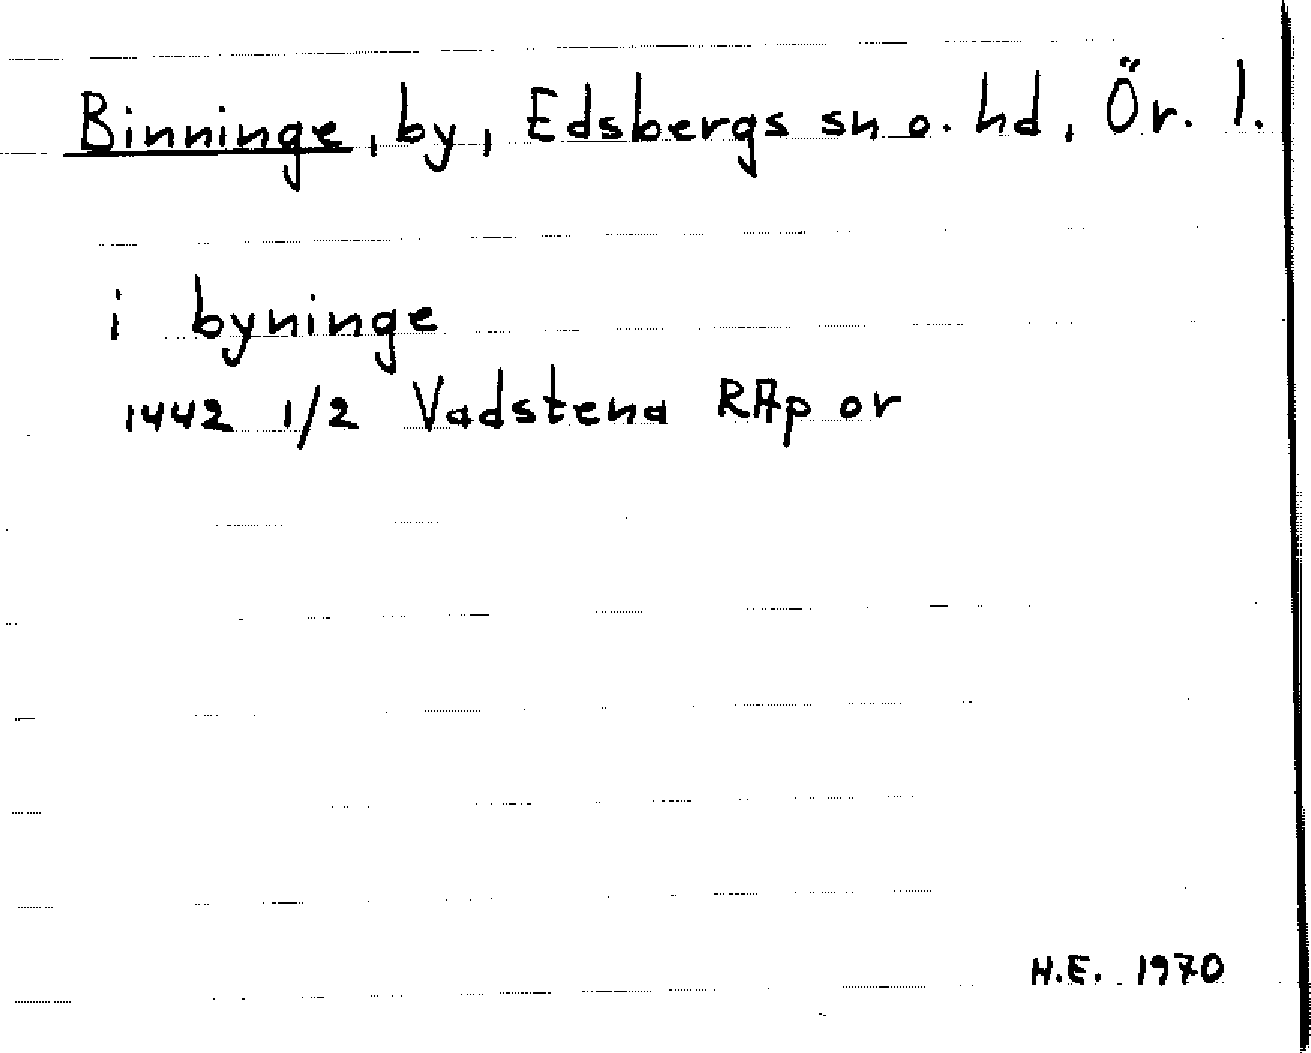 Binninge, by, Edsbergs sn o. hd, Ör. l.
i byninge
1442 1/2 Vadstena RAp or
H.E. 1970